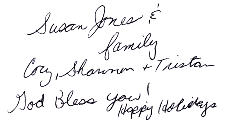 Susan Jones &
family
Cory, Shannon + Tristan
God Bless you!
Happy Holidays